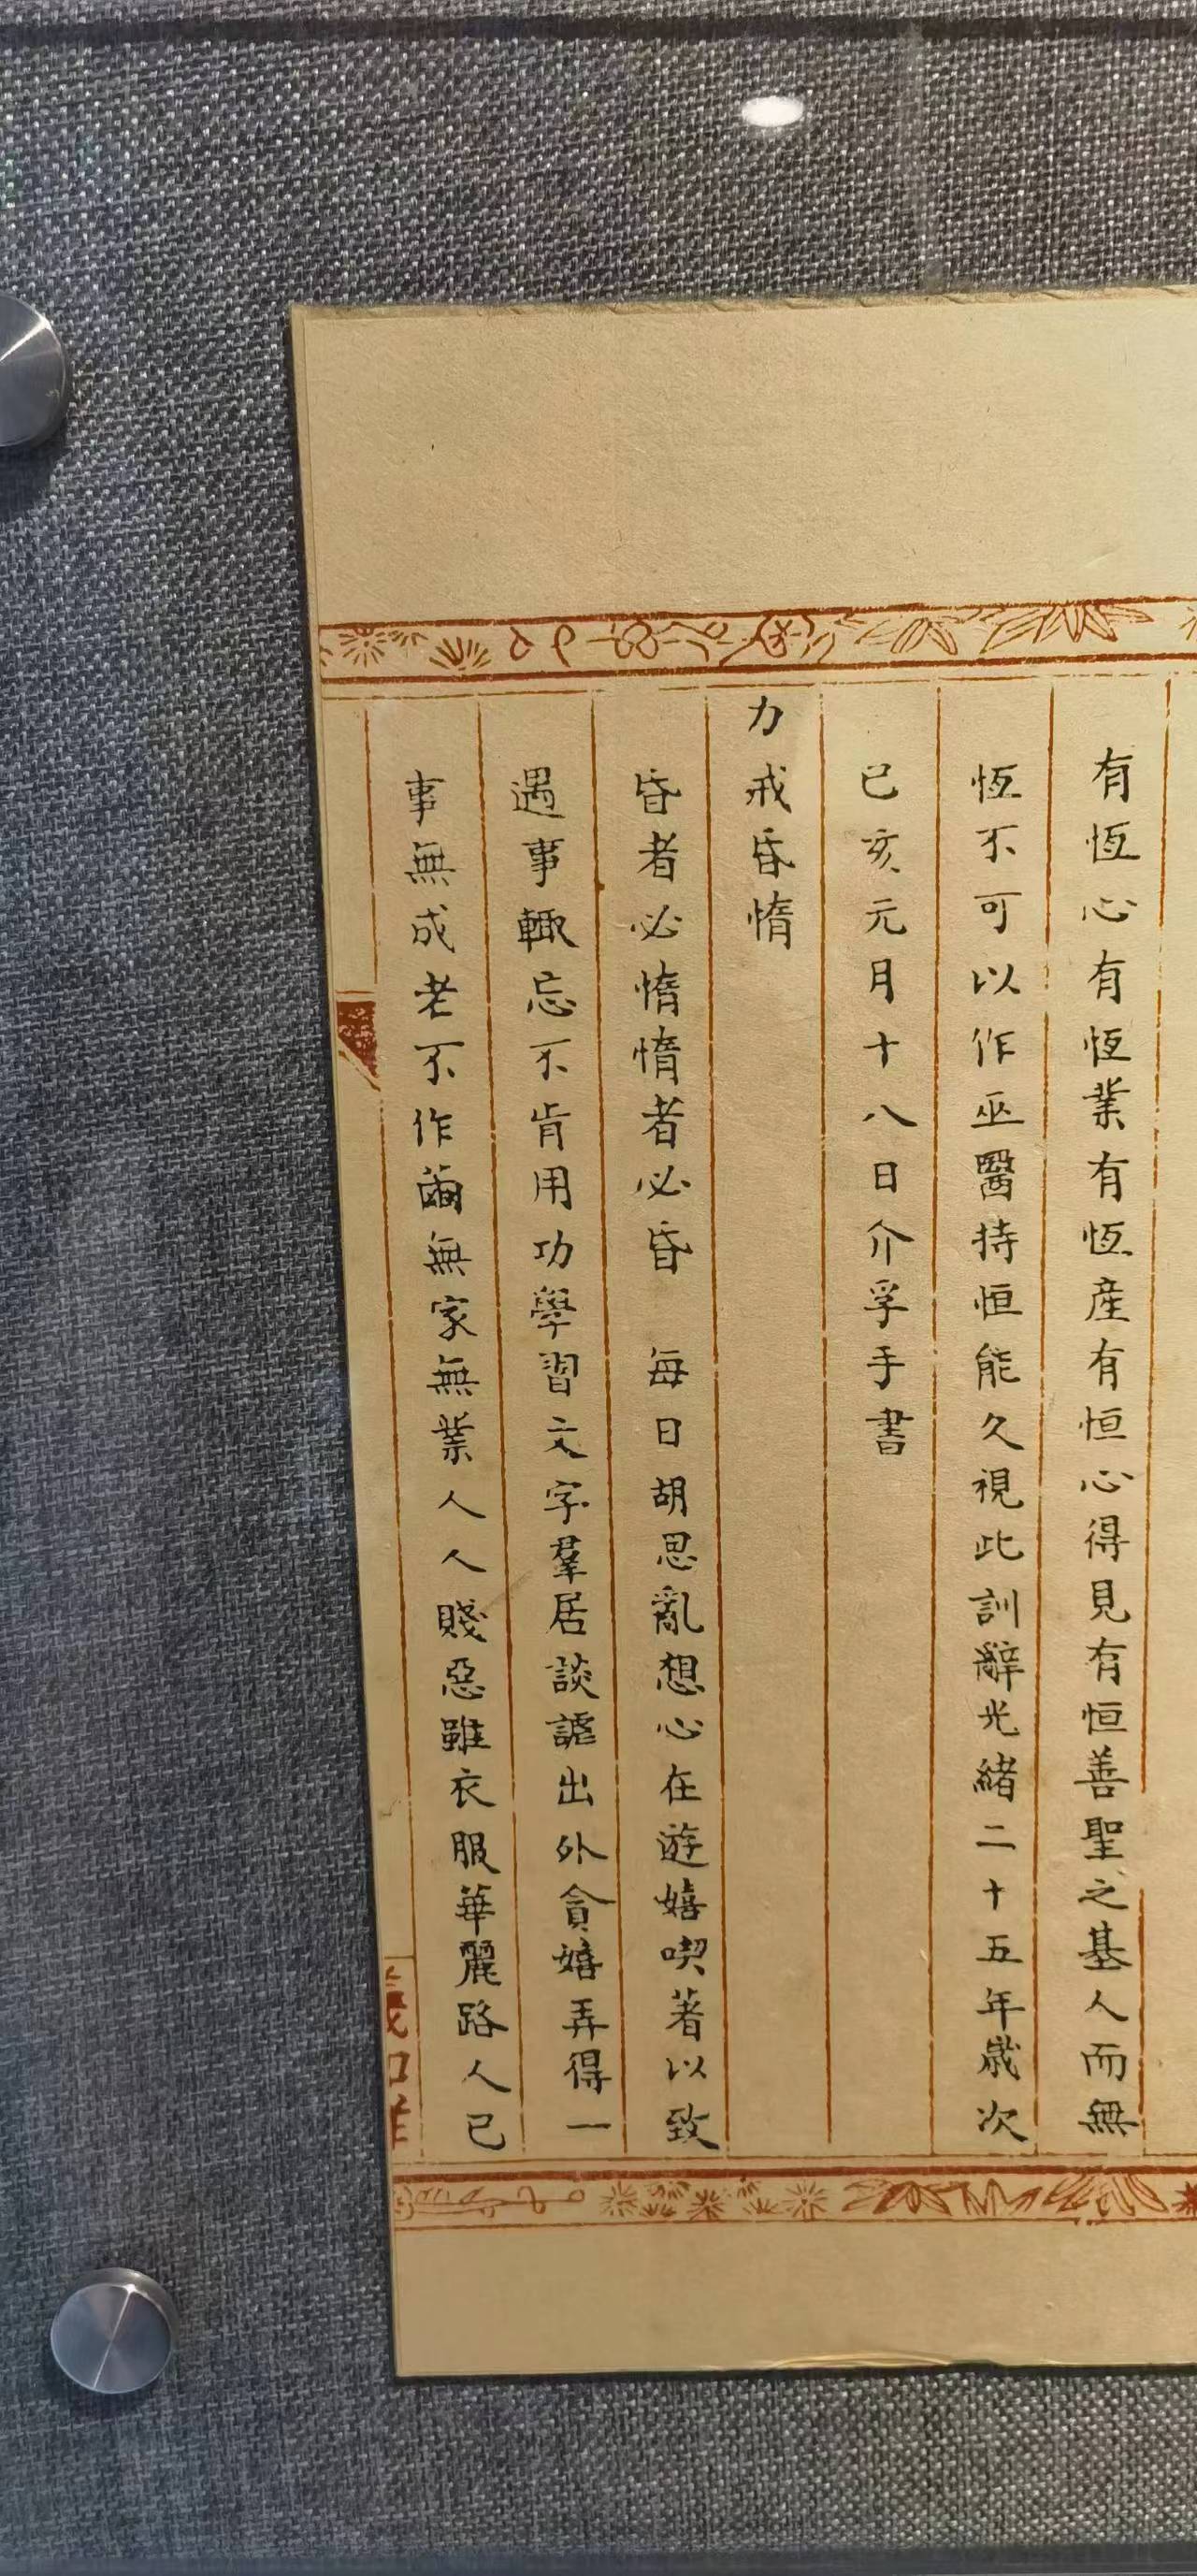 有恆心有恆業有恆産有恒心得見有恒善聖之基人而無
恆不可以作巫醫持恒能久視此訓辭光緒二十五年歲次
已亥元月十八日介孚手書
力戒昏惰
昏者必惰惰者必昏 每日胡思亂想心在遊嬉喫著以致
遇事輒忘不肯用功學習文字羣居談謔出外貪嬉弄得一
事無成老不作繭無家無業人人賤惡雖衣服華麗路人已